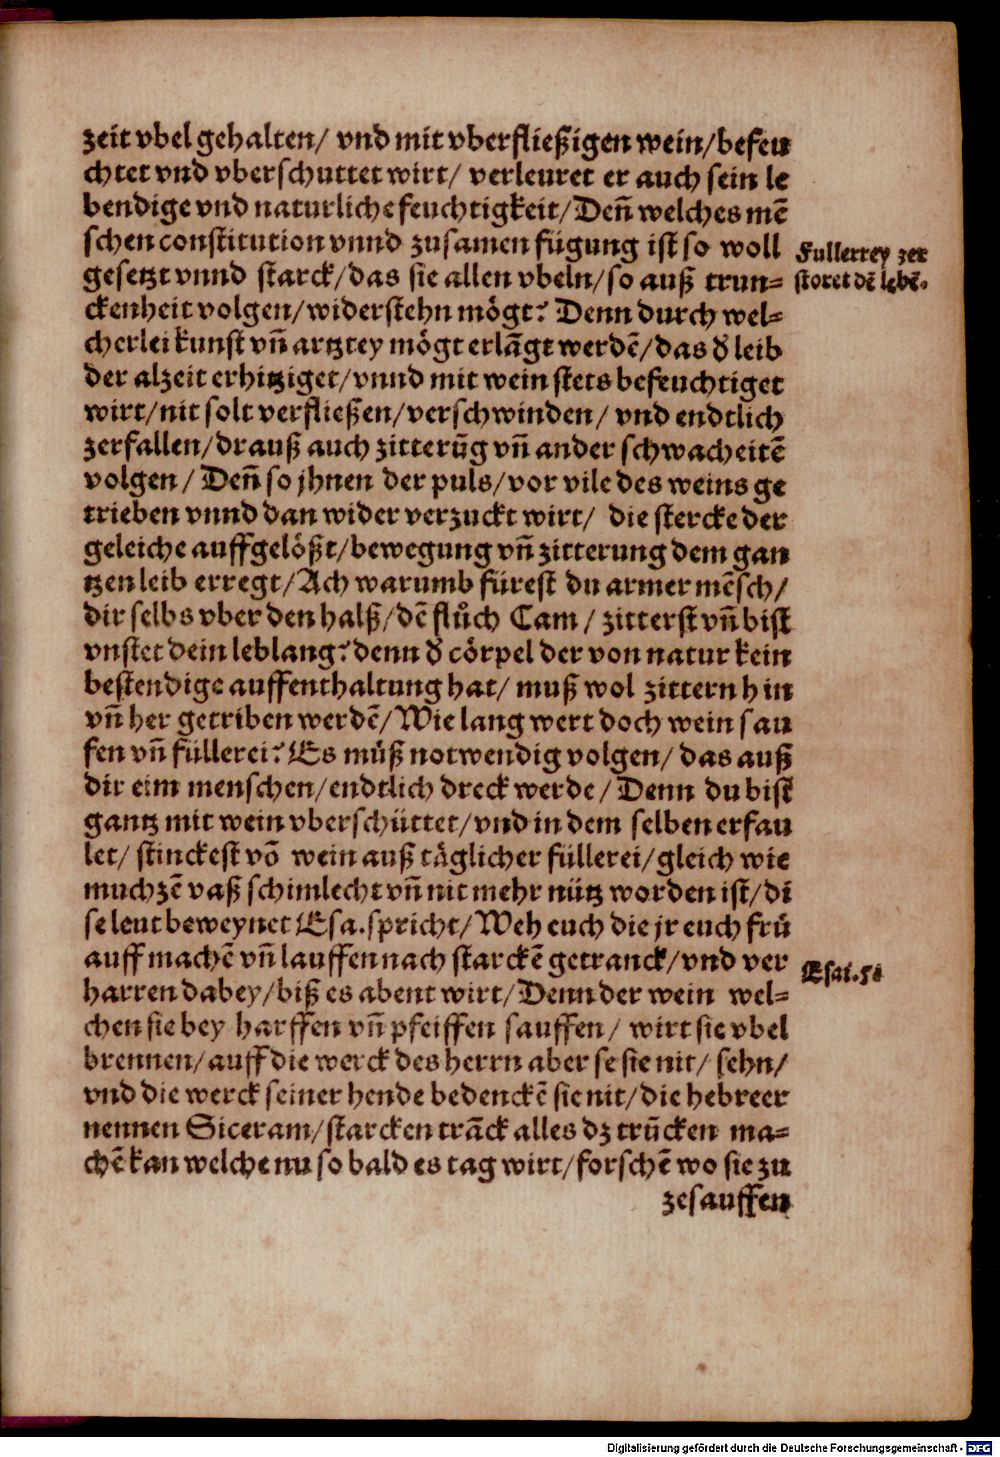 zeit vbel gehalten/ vnd mit vberfließigen wein/befeu
chtet vnd vberschuttet wirt/ verleuret er auch sein le
bendige vnd naturliche feuchtigkeit/Deñ welches mẽ
schen constitution vnnd zusamen fügung ist so woll
Fullerrey zer
gesetzt vnnd starck/das sie allen vbeln/so auß trun⸗
storet dẽ lebẽ.
ckenheit volgen/widerstehn mögt? Denn durch wel⸗
cherlei kunst vñ artztey mögt erlãgt werdẽ/das d̕ leib
der alzeit erhitziget/vnnd mit wein stets befeuchtiget
wirt/nit solt verfließen/verschwinden/ vnd endtlich
zerfallen/drauß auch zitterũg vñ ander schwacheitẽ
volgen/ Deñ so jhnen der puls/vor vile des weins ge
trieben vnnd dan wider verzuckt wirt/ die stercke der
geleiche auffgelößt/bewegung vñ zitterung dem gan
tzen leib erregt/Ach warumb fürest du armer mẽsch/
dir selbs vber den halß/dẽ flůch Cam/ zitterst vñ bist
vnstet dein leblang? denn d̕ cörpel der von natur kein
bestendige auffenthaltung hat/ muß wol zittern hin
vñ her getriben werdẽ/Wie lang wert doch wein sau
fen vñ füllerei? Es můß notwendig volgen/ das auß
dir eim menschen/endtlich dreck werde/ Denn du bist
gantz mit wein vberschüttet/vnd in dem selben erfau
let/ stinckest võ wein auß täglicher füllerei/gleich wie
muchzẽ vaß schimlecht vñ nit mehr nütz worden ist/di
se leut beweynet Esa.spricht/Weh euch die jr euch frů
auff machẽ vñ lauffen nach starckẽ getranck/vnd ver
Esai.51
harren dabey/biß es abent wirt/Denn der wein wel⸗
chen sie bey harffen vñ pfeiffen sauffen/ wirt sie vbel
brennen/auff die werck des herrn aber se sie nit/ sehn/
vnd die werck seiner hende bedenckẽ sie nit/die hebreer
nennen Siceram/starcken trãck alles dz trũcken ma⸗
chẽ kan welche nu so bald es tag wirt/forschẽ wo sie zu
zesauffen
Digitalisierung gefördert durch die Deutsche Forschungsgemeinschaft - DFG